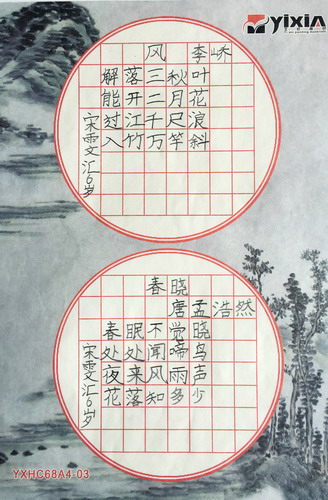 yixin
风 李峤
解落三秋叶
能开二月花
过江千尺浪
入竹万竿斜
宋雯汇6岁
春晓
唐 孟浩然
春眠不觉晓
处处闻啼鸟
夜来风雨声
花落知多少
宋雯汇6岁
YXHC68A4-03